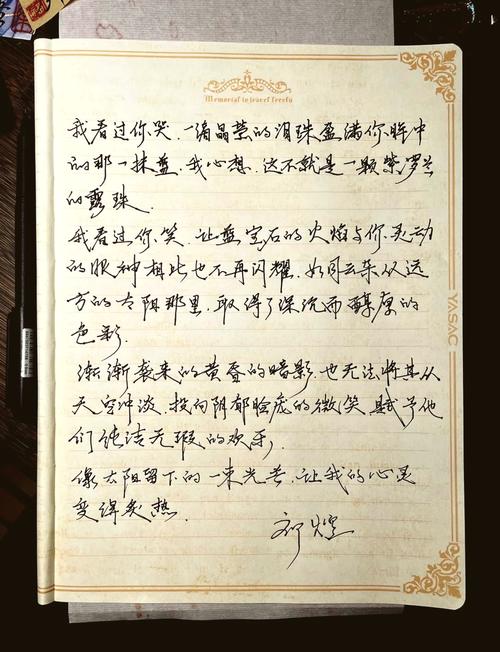 Memorial to travel freely
我看过你哭，一滴晶莹的泪珠盈满你眸中
的那一抹蓝，我心想，这不就是一颗紫罗兰
的露珠，
我看过你笑，让蓝宝石的火焰与你灵动
的眼神相比也不再闪耀，如同云朵从远
方的太阳那里，取得了深沉而醇厚的
色彩，
渐渐袭来的黄昏的暗影，也无法将其从
天空冲淡，投向阴郁脸庞的微笑，赋予他
们纯洁无瑕的欢乐，
像太阳留下的一束光芒，让我的心灵
变得炙热，
YASAC